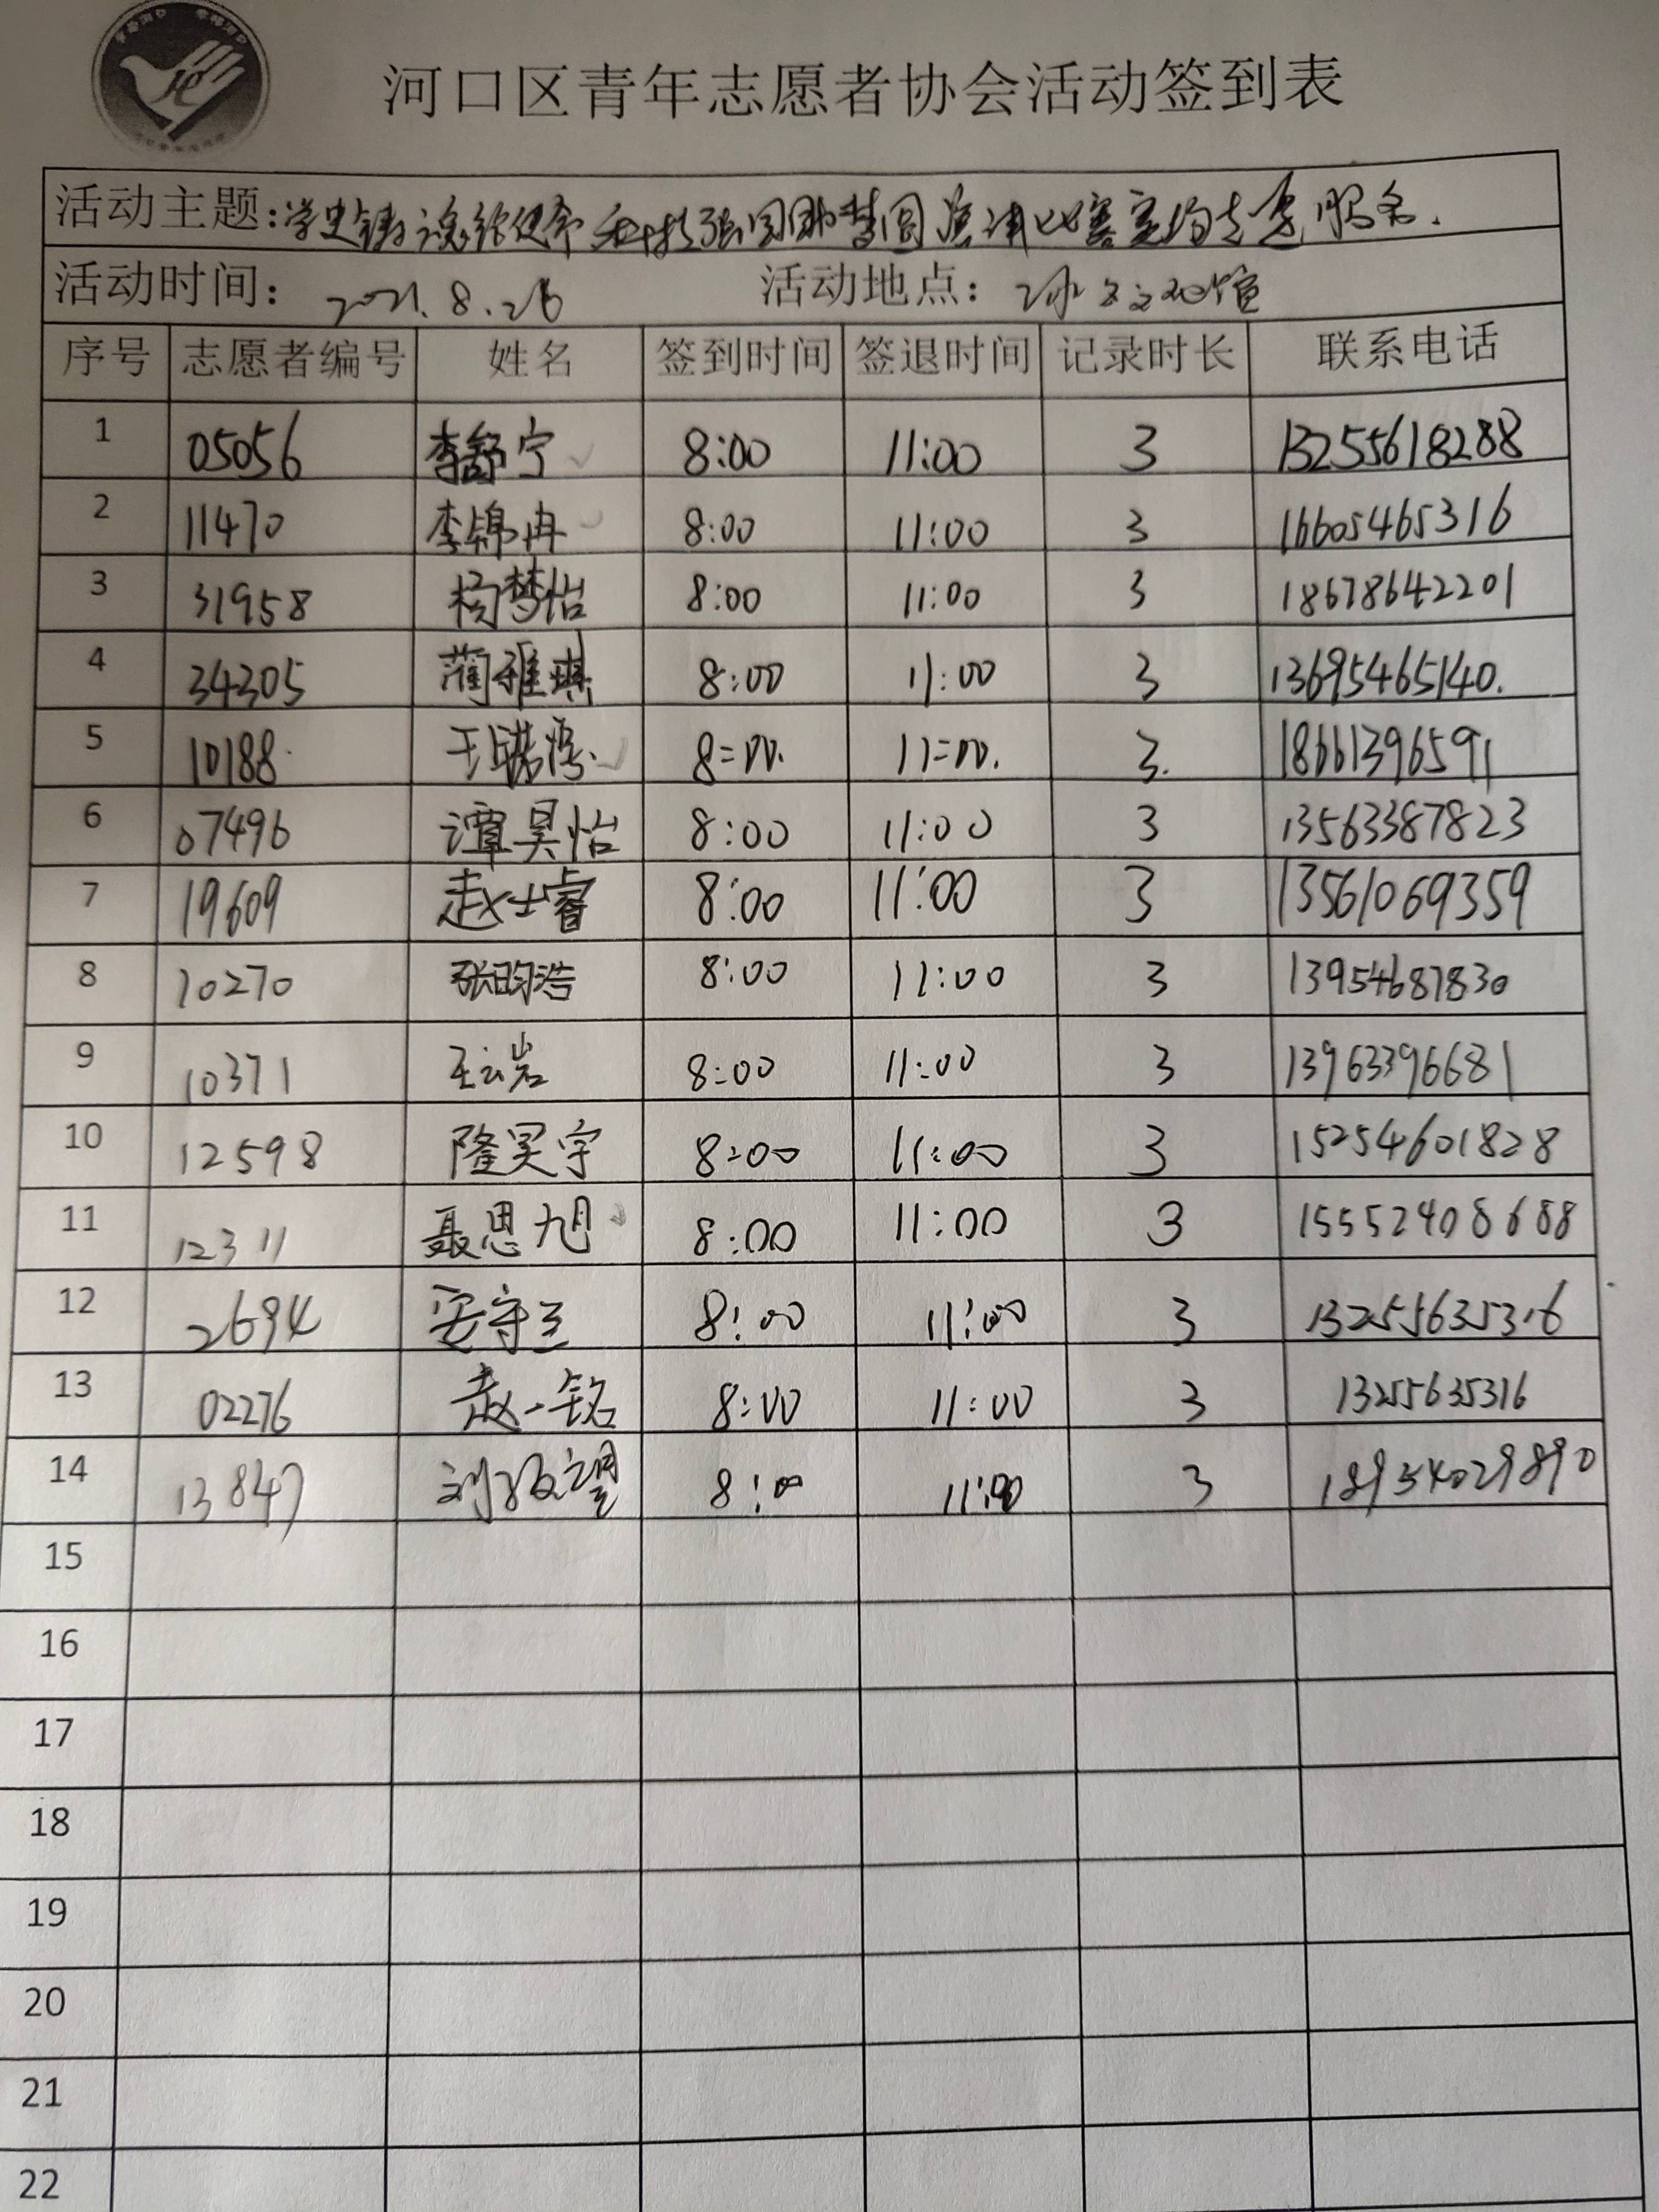 河口区青年志愿者协会活动签到表
活动主题:学史铸魂绘使命 科技强国助梦圆演讲比赛赛场志愿服务.
活动时间: 2021.8.26 活动地点:
序号 志愿者编号 姓名 签到时间 签退时间 记录时长 联系电话
1 05056 李舒宁 8:00 11:00 3 13255618288
2 11470 李锦冉 8:00 11:00 3 16605465316
3 31958 杨梦怡 8:00 11:00 3 18678642201
4 34305 蔺雅琪 8:00 11:00 3 13695465140.
5 10188 王 8:00 11:00 3. 18661396591
6 07496 谭昊怡 8:00 11:00 3 13563387823
7 19609 赵士睿 8:00 11:00 3 13561069359
8 10270 张昀浩 8:00 11:00 3 13954687830
9 10371 王云岩 8:00 11:00 3 13963396681
10 12598 隆昊宇 8:00 11:00 3 15254601828
11 12311 聂思旭 8:00 11:00 3 15552408688
12 2694 安守兰 8:00 11:00 3 13255635316
13 02276 赵一铭 8:00 11:00 3 13255635316
14 13847 刘 望 8:00 11:00 3 18954029890
15
16
17
18
19
20
21
22